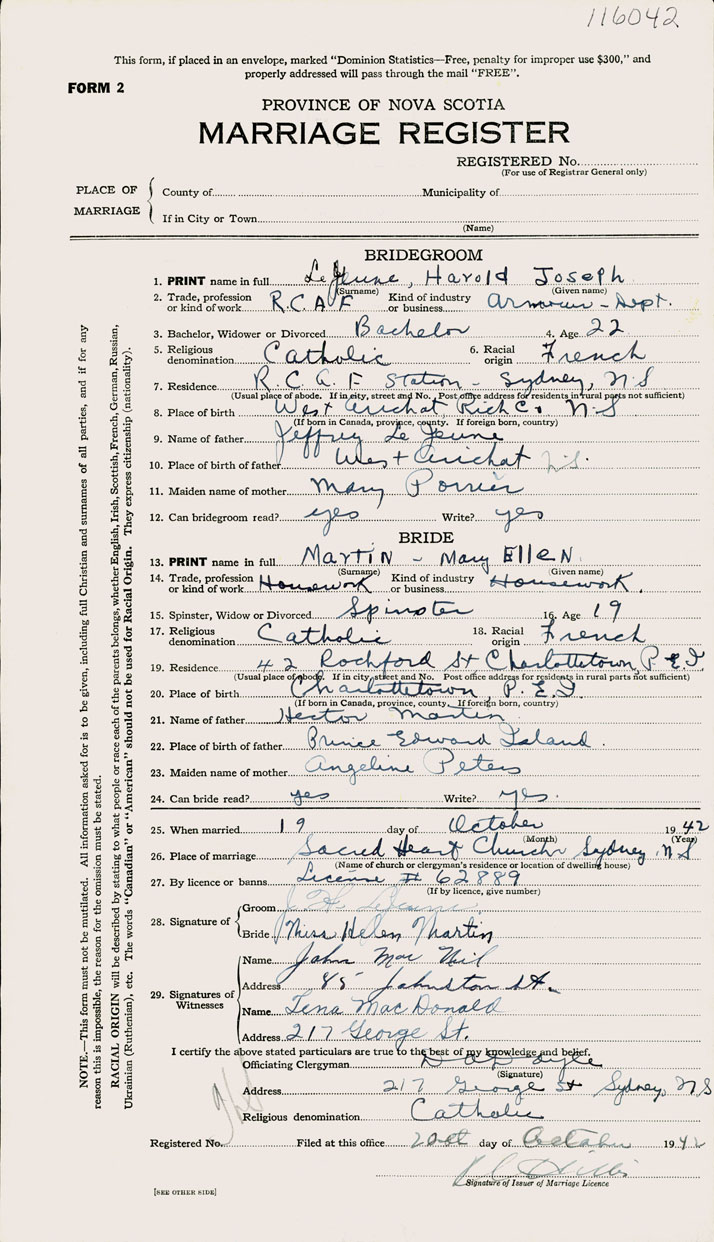 116042
This form, if placed in an envelope, marked "Dominion Statistics—Free, penalty for improper use $300," and
properly addressed will pass through the mail "FREE".
FORM 2
PROVINCE OF NOVA SCOTIA
MARRIAGE REGISTER
REGISTERED No.
(For use of Registrar General only)
PLACE OF MARRIAGE
County of Municipality of
If in City or Town
(Name)
BRIDEGROOM
1. PRINT name in full LeJeune, Harold Joseph
(Surname) (Given name)
2. Trade, profession or kind of work R.C.A.F Kind of industry or business Armour - Dept.
3. Bachelor, Widower or Divorced Bachelor 4. Age 22
5. Religious denomination Catholic 6. Racial origin French
7. Residence R.C.A.F Station - Sydney, N.S
(Usual place of abode. If in city, street and No. Post office address for residents in rural parts not sufficient)
8. Place of birth West Arichat, Rich Co. N.S
(If born in Canada, province, county. If foreign born, country)
9. Name of father Jeffrey LeJeune
10. Place of birth of father West Arichat N.S.
11. Maiden name of mother Mary Poirrier
12. Can bridegroom read? yes Write? yes
BRIDE
13. PRINT name in full MARTIN - Mary EllEN
(Surname) (Given name)
14. Trade, profession or kind of work Housework Kind of industry or business Housework.
15. Spinster, Widow or Divorced Spinster 16. Age 19
17. Religious denomination Catholic 18. Racial origin French
19. Residence 42 Rochford St Charlottetown, P.E.I
(Usual place of abode. If in city, street and No. Post office address for residents in rural parts not sufficient)
20. Place of birth Charlottetown, P.E.I
(If born in Canada, province, county. If foreign born, country)
21. Name of father Hector Martin
22. Place of birth of father Prince Edward Island.
23. Maiden name of mother Angeline Peters
24. Can bride read? yes Write? yes.
25. When married 19 day of October 1942
(Month) (Year)
26. Place of marriage Sacred Heart Church Sydney, N.S
(Name of church or clergyman's residence or location of dwelling house)
27. By licence or banns License # 62889
(If by licence, give number)
28. Signature of
Groom J. H. LeJeune
Bride Miss Helen Martin
29. Signatures of Witnesses
Name John Mac Neil
Address 85 Johnston St.
Name Tena MacDonald
Address 217 George St.
I certify the above stated particulars are true to the best of my knowledge and belief.
Officiating Clergyman
(Signature)
Address 217 George St Sydney, N.S
Religious denomination Catholic
Registered No. Filed at this office 20th day of October 1942
Signature of Issuer of Marriage Licence
[SEE OTHER SIDE]
NOTE.—This form must not be mutilated. All information asked for is to be given, including full Christian and surnames of all parties, and if for any
reason this is impossible, the reason for the omission must be stated.
RACIAL ORIGIN will be described by stating to what people or race each of the parents belongs, whether English, Irish, Scottish, French, German, Russian,
Ukrainian (Ruthenian), etc. The words "Canadian" or "American" should not be used for Racial Origin. They express citizenship (nationality).